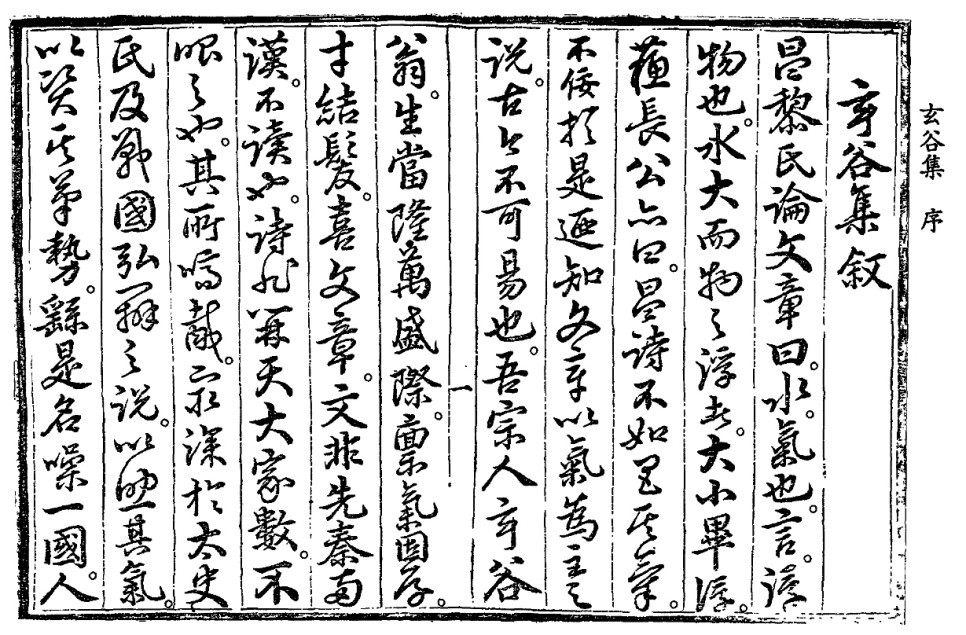 玄谷集 序
玄谷集叙
昌黎氏論文章曰。水。氣也。言。浮
物也。水大而物之浮者。大小畢浮。
蘓長公亦曰。昌詩不如昌其氣。
不佞於是逾知文章以氣爲主之
説。古今不可易也。吾宗人玄谷
一
翁。生當隆萬盛際。稟氣固厚。
才結髮。喜文章。文非先秦兩
漢。不讀也。詩非開天大家數。不
眼之也。其所嗜胾。㝡深於太史
氏及戰國弘辯之説。以助其氣。
以資其筆勢。繇是名噪一國。人